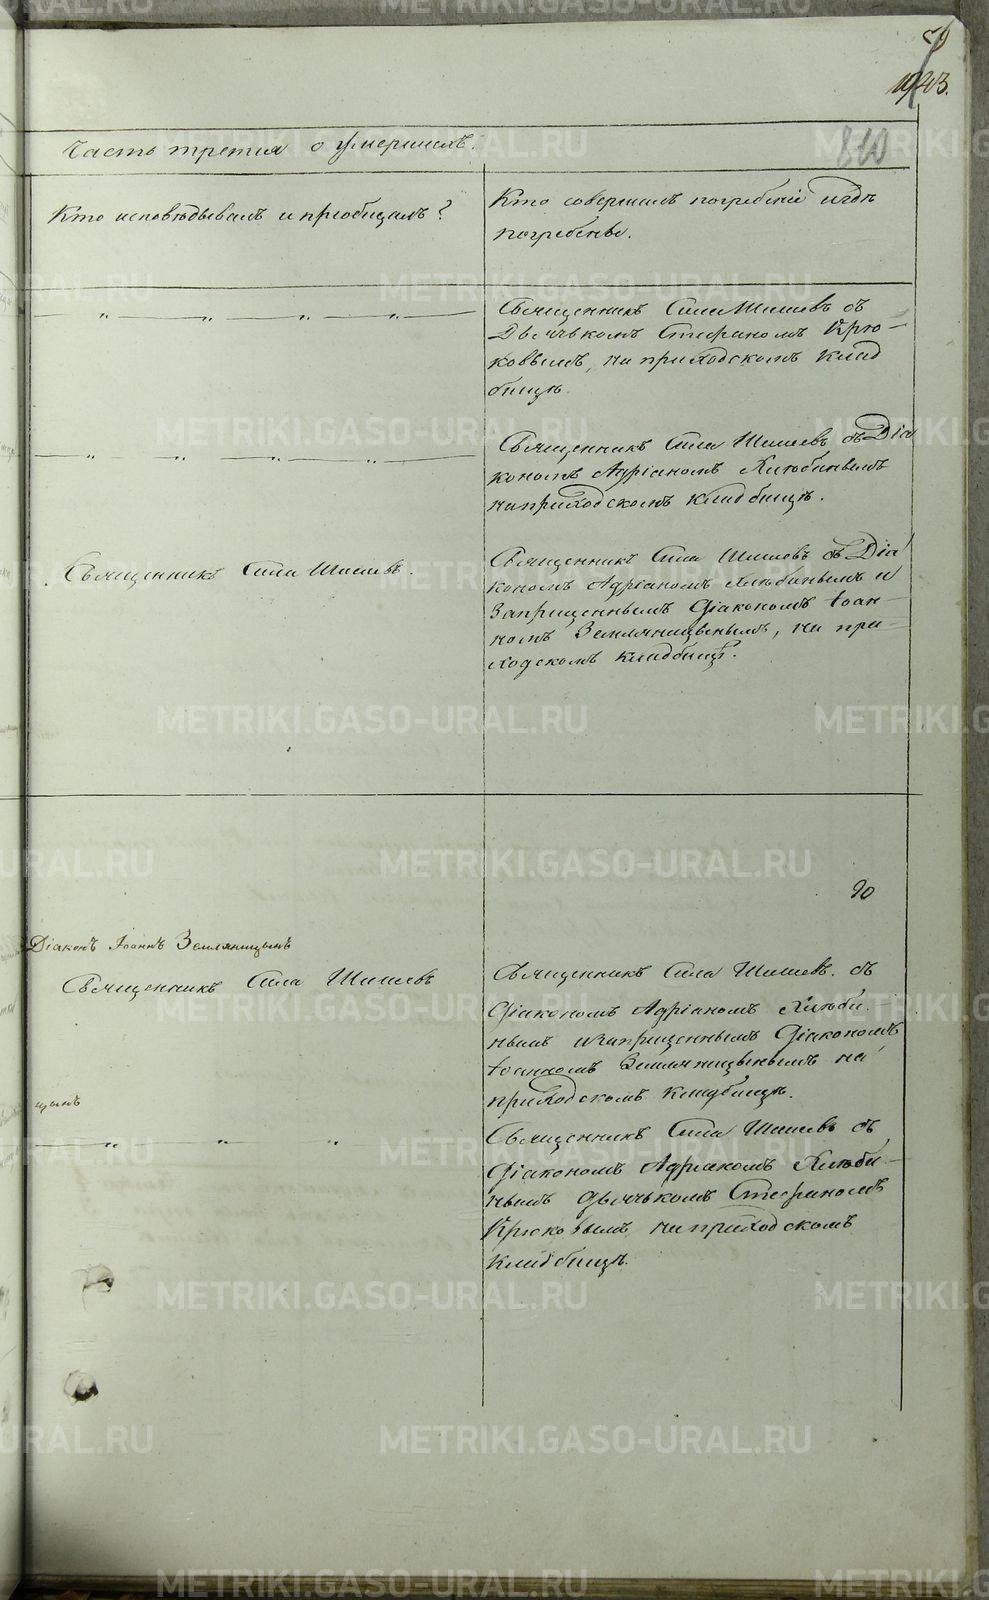 59
1943.
810
Часть третія о умершихъ.
Кто исповѣдывалъ и пріобщалъ?
Кто совершалъ погребеніе и гдѣ
погребены.
" " " "
Священникъ Сила Шишевъ съ
Дьячькомъ Стефаномъ Крю-
ковымъ, на приходскомъ клад
бищѣ.
" " " "
Священникъ Сила Шишевъ съ Діа
кономъ Адріаномъ Хлѣбинымъ
на приходскомъ кладбищѣ.
Священникъ Сила Шишевъ.
Священникъ Сила Шишевъ съ Діа
кономъ Адріаномъ Хлѣбинымъ и
Запрещеннымъ Діакономъ Іоан-
номъ Земляницынымъ, на при-
ходскомъ кладбищѣ.
90
Діаконъ Іоаннъ Земляницынъ
Священникъ Сила Шишевъ
Священникъ Сила Шишевъ. съ
Діакономъ Адріаномъ Хлѣби-
нымъ и запрещеннымъ Діакономъ
Іоанномъ Земляницынымъ на
приходскомъ кладбищѣ.
цынъ
" " "
Священникъ Сила Шишевъ съ
Діакономъ Адріаномъ Хлѣби-
нымъ Дьячькомъ Стефаномъ
Крюковымъ на приходскомъ
кладбищѣ.
METRIKI.GASO-URAL.RU